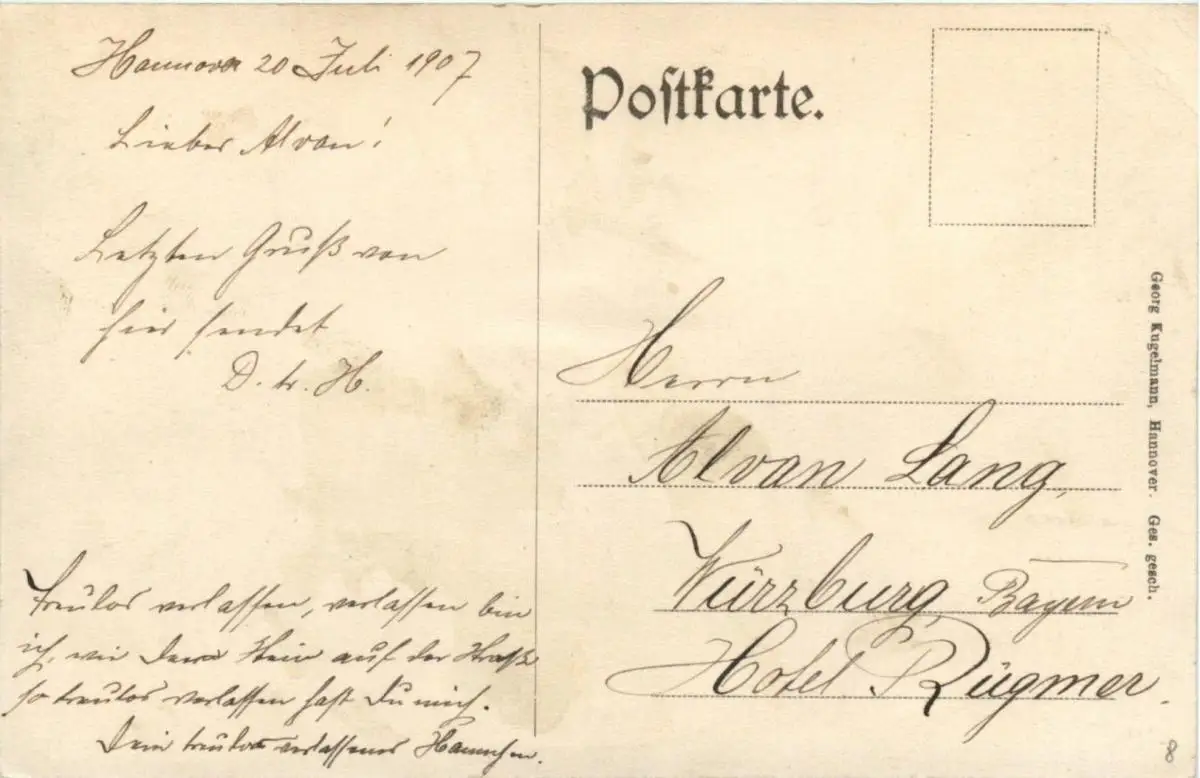 Hannover 20 Juli 1907
Lieber Alvan!
Letzten Gruß von
hier sendet
D. tr. H.
Treulos verlassen, verlassen bin
ich, wie der Stein auf der Straße
so treulos verlassen hast Du mich.
Dein treulos verlassenes Hannchen.
Postkarte.
Herrn
Alvan Lang,
Würzburg, Bayern
Hotel Rügmer.
Georg Kugelmann, Hannover. Ges. gesch.
8